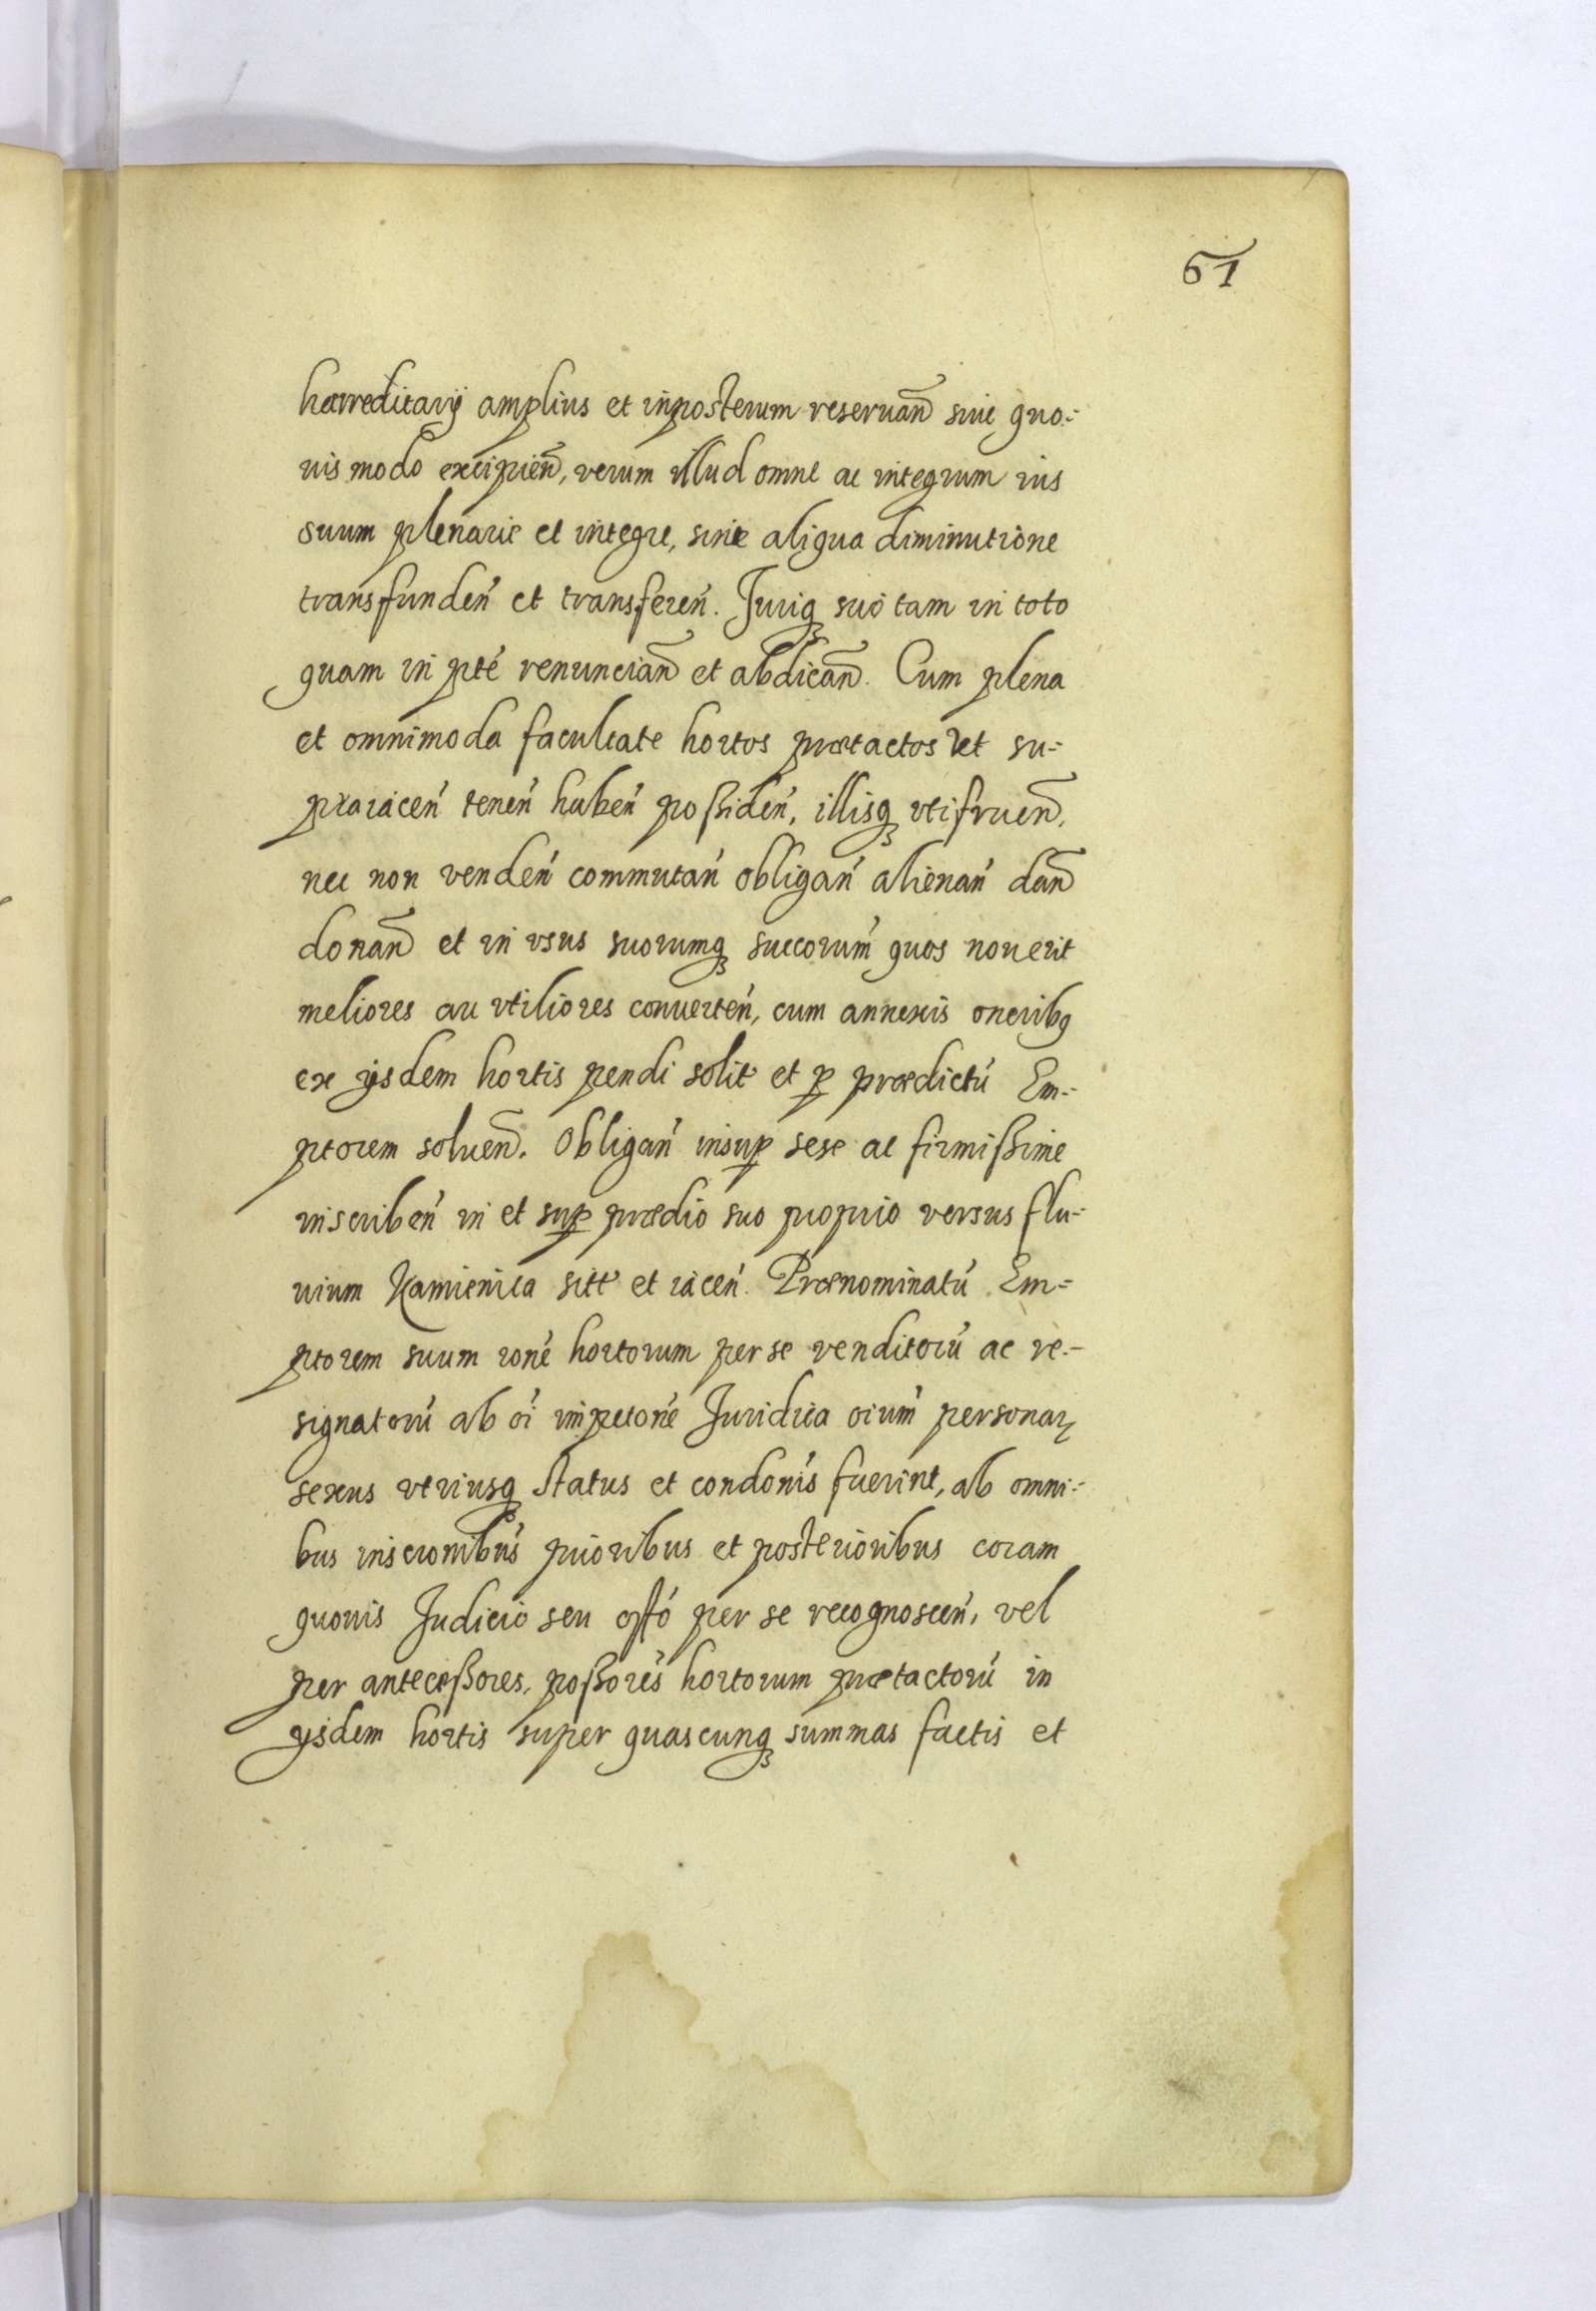 61
haereditarij amplius et inposterum reseruan̄ siue quo=
uis modo excipien̄, verum illud omne ac integrum ius
suum plenarie et integre, sine aliqua diminutione
transfunden̄ et transferen̄. Juriq₃ suo tam in toto
quam in ptē renuncian̄ et abdican̄. Cum plena
et omnimoda facultate hortos praetactos et su=
praiacen̄ tenen̄ haben̄ poßiden̄, illisq₃ vtifruen̄,
nec non venden̄ commutan̄ obligan̄ alienan̄ dan̄
donan̄ et in vsus suorumq₃ succorum̄ quos nouerit
meliores ac vtiliores conuerten̄, cum annexis oneribꝰ
ex ijsdem hortis pendi solit et ꝑ praedictū Em=
ptorem soluen̄. Obligan̄ insuꝑ sese ac firmißime
inscriben̄ in et suꝑ praedio suo proprio versus flu=
uium Kamienica sitt et iacen̄. Praenominatū Em=
ptorem suum rone̅ hortorum per se venditorū ac re=
signatorū ab oī impetone̅ Juridica oium̄ personaꝝ
sexus vtriusq₃ status et condonis̄ fuerint, ab omni=
bus inscronibus̄ prioribus et posterioribus coram
quouis Judicio seu offō per se recognoscen̄, vel
per anteceßores, poßores̄ hortorum praetactorū in
ijsdem hortis super quascunq₃ summas factis et